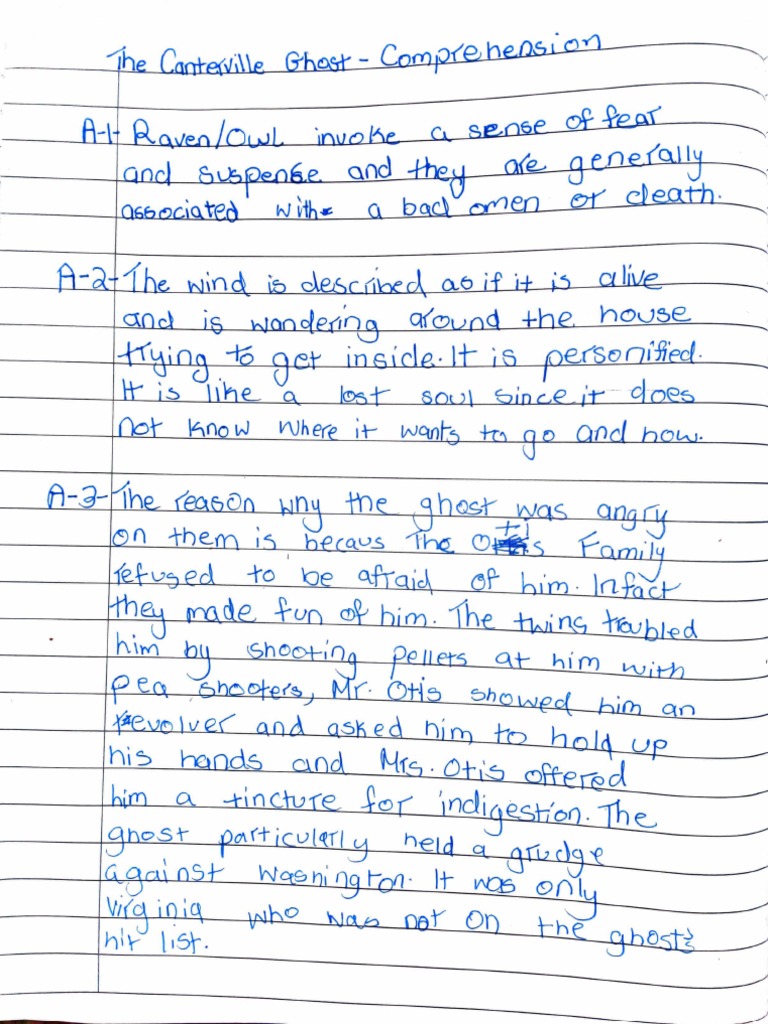 The Canterville Ghost - Comprehension
A-1- Raven/Owl invoke a sense of fear
and suspense and they are generally
associated with a bad omen or death.
A-2- The wind is described as if it is alive
and is wandering around the house
trying to get inside. It is personified.
It is like a lost soul since it does
not know where it wants to go and how.
A-3- The reason why the ghost was angry
on them is becaus The Otis Family
refused to be afraid of him. Infact
they made fun of him. The twins troubled
him by shooting pellets at him with
pea shooters, Mr. Otis showed him an
revolver and asked him to hold up
his hands and Mrs. Otis offered
him a tincture for indigestion. The
ghost particularly held a grudge
against Washington. It was only
Virginia who was not on the ghost's
hit list.